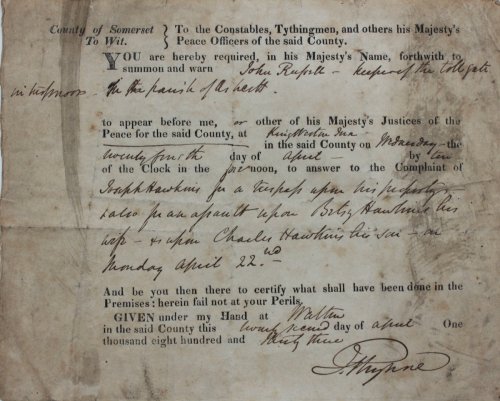 County of Somerset To the Constables, Tythingmen, and others his Majesty's
To Wit. Peace Officers of the said County.
YOU are hereby required, in his Majesty's Name, forthwith to
summon and warn John Russell - keeper of the Tollgate
in the parish of
to appear before me, or other of his Majesty's Justices of the
Peace for the said County, at Kingweston Inn
in the said County on Wednesday the
twenty fourth day of April - by ten
of the Clock in the fore noon, to answer to the Complaint of
Joseph Hawkins for a trespass upon his property -
& also for an assault upon Betsy Hawkins his
wife - & upon Charles Hawkins his son - on
Monday April 22.nd
And be you then there to certify what shall have been done in the
Premises: herein fail not at your Perils.
GIVEN under my Hand at Walton
in the said County this twenty second day of April One
thousand eight hundred and thirty three